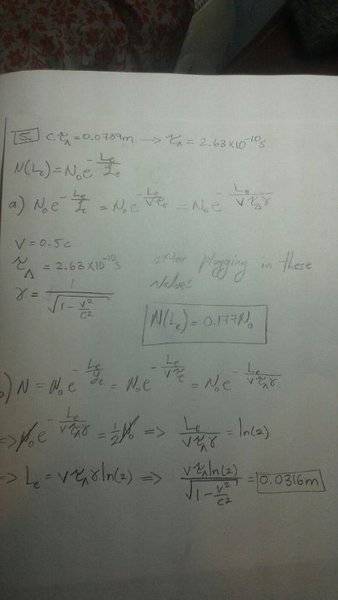 5. cτ_Λ = 0.0789m → τ_Λ = 2.63×10^-10 s
N(L_e) = N_0 e^(-L_e/ℒ_e)
a) N_0 e^(-L_e/ℒ_e) = N_0 e^(-L_e/vτ) = N_0 e^(-L_e/(vτ_Λγ))
V = 0.5c
τ_Λ = 2.63×10^-10 s after plugging in these
γ = 1/√(1-v²/c²) values
N(L_e) = 0.177N_0
b) N = N_0 e^(-L_e/ℒ_e) = N_0 e^(-L_e/vτ) = N_0 e^(-L_e/(vτ_Λγ))
=> N_0 e^(-L_e/(vτ_Λγ)) = 1/2 N_0 => L_e/(vτ_Λγ) = ln(2)
=> L_e = Vτ_Λγ ln(2) => Vτ_Λ ln(2)/√(1-v²/c²) = 0.0316m